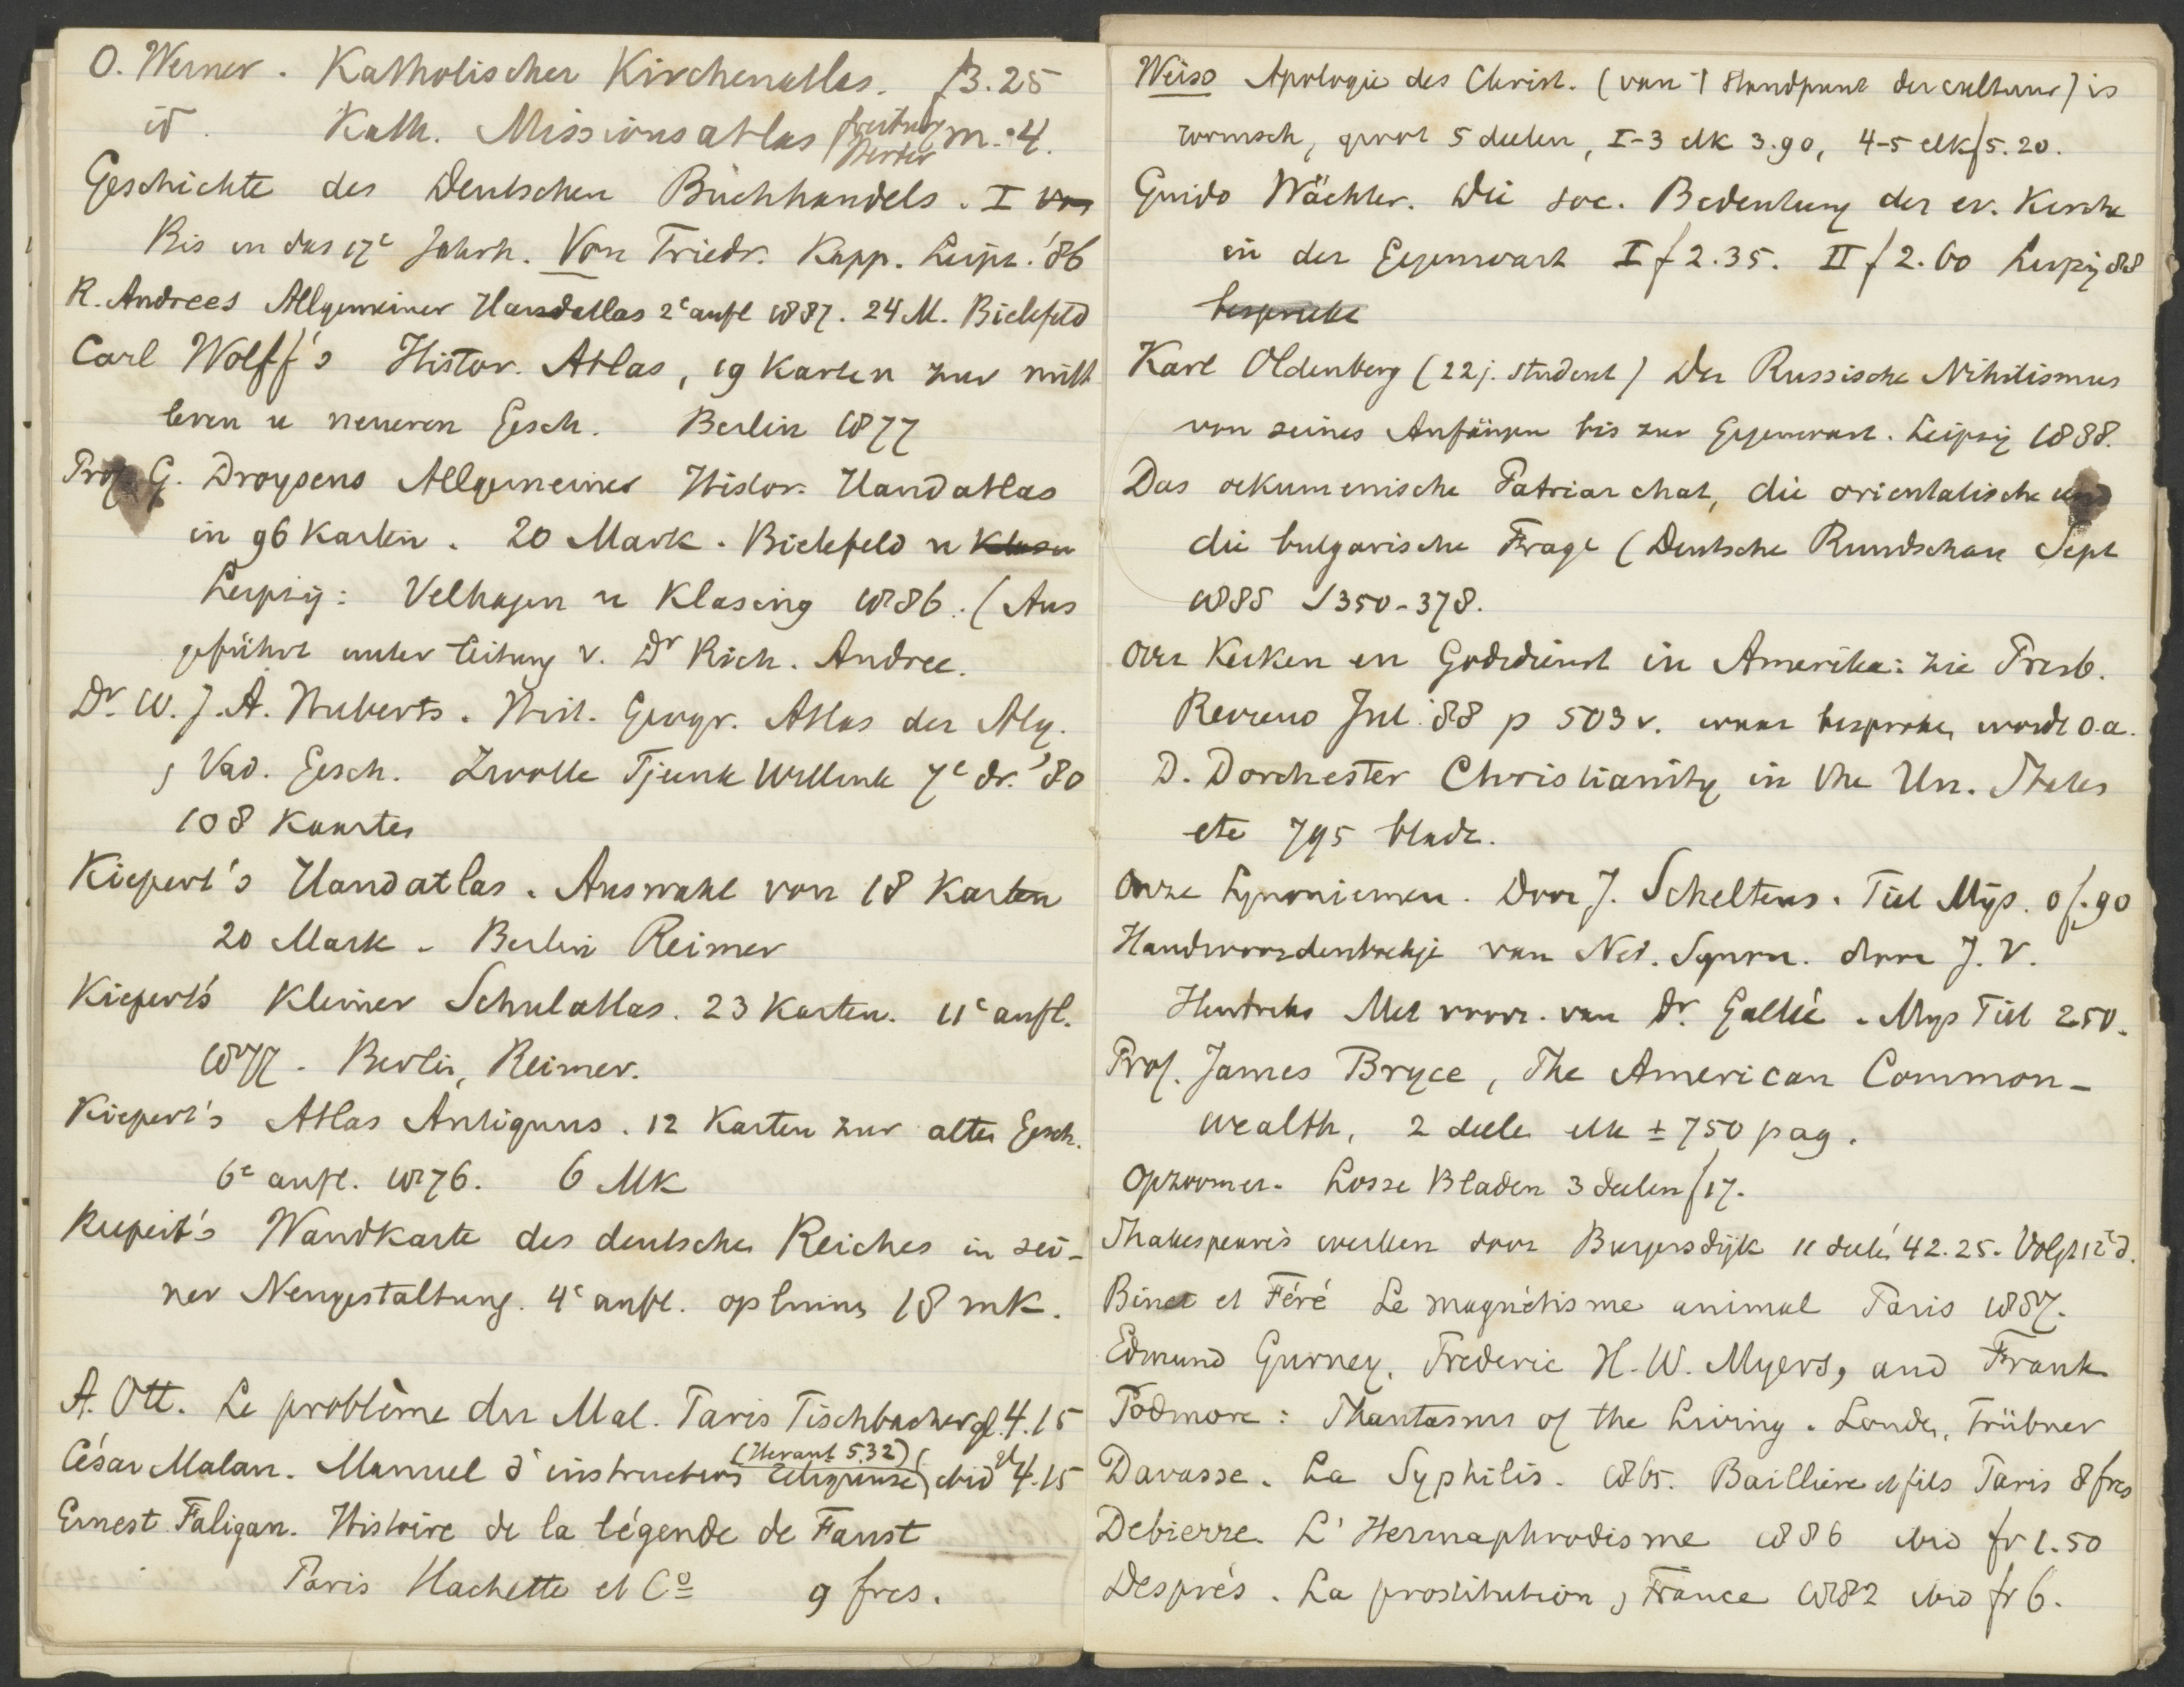 O. Werner. Katholischer Kirchenatlas. f3.25
id. Kath. Missionsatlas freiburg Herder m. 4.
Geschichte des Deutschen Buchhandels. I von
Bis in das 17e Jahrh. Von Friedr. Kapp. Leipz. '86
R. Andrees Allgemeiner Handatlas 2e aufl 1887. 24 M. Bielefeld
Carl Wolff's Histor. Atlas, 19 Karten zur mitt
leren u neueren Gesch. Berlin 1877
Prof. G. Droysens Allgemeines Histor. Handatlas
in 96 Karten. 20 Mark. Bielefeld u Klasen
Leipzig: Velhagen u Klasing 1886. (Aus
geführt unter leitung v. Dr Rich. Andree.
Dr. W. J. A. Huberts. Hist. Geogr. Atlas der Alg.
, Vad. Gesch. Zwolle Tjeenk Willink 7e dr. '80
108 Kaarten
Kiepert's Handatlas. Auswahl von 18 Karten
20 Mark - Berlin Reimer
Kiepert's Kleiner Schulatlas. 23 Karten. 11e aufl.
1877 - Berlin, Reimer.
Kiepert's Atlas Antiquus. 12 Karten zur alten Gesch.
6e aufl. 1876. 6 Mk
Kiepert's Wandkarte des deutschen Reiches in sei-
ner Neugestaltung. 4e aufl. op linnen 18 mk.
A. Ott. Le problème du Mal. Paris Fischbacher gl. 4.15
César Malan. Manuel d'instruction religieuse (Heraut 532) ibid gl 4.15
Ernest Faligan. Histoire de la légende de Faust
Paris Hachette et Co 9 frcs.
Weiss Apologie des Christ. (van 't standpunt der cultuur) is
roomsch, groot 5 deelen, I-3 elk 3.90, 4-5 elk f5.20.
Guido Wächter. Die soc. Bedeutung der ev. Kirche
in der Gegenwart I f 2.35. II f 2.60 Leipzig 88
besproke
Karl Oldenberg (22 j. student) Der Russische Nihilismus
von seines Anfängen bis zur Gegenwart. Leipzig 1888.
Das oekumenische Patriarchat, die orientalische und
die bulgarische Frage (Deutsche Rundschau Sept
1885 S 350-378.
Over Kerken en Godsdienst in Amerika: zie Presb.
Review Jul. '88 p 503 v. waar besproken wordt o.a.
D. Dorchester Christianity in the Un. States
etc 795 bladz.
Onze Synoniemen. Door J. Scheltens. Tiel Mijs. 0f.90
Handwoordenboekje van Ned. Synon. door J. V.
Hendriks Met voorr. van Dr. Gallée. Mijs Tiel 250.
Prof. James Bryce, The American Common-
wealth, 2 deele elk ± 750 pag.
Opzoomer. Losse Bladen 3 deelen f17.
Shakespeare's werken door Burgersdijk 11 deele 42.25. Volgt 12e d.
Binet et Féré Le magnétisme animal Paris 1887.
Edmund Gurney, Frederic H. W. Myers, and Frank
Podmore: Phantasms of the Living. Londn, Trübner
Davasse. La Syphilis. 1865. Baillière et fils Paris 8 frcs
Debierre. L'Hermaphrodisme 1886 ibid fr 1.50
Després. La prostitution , France 1882 ibid fr 6.